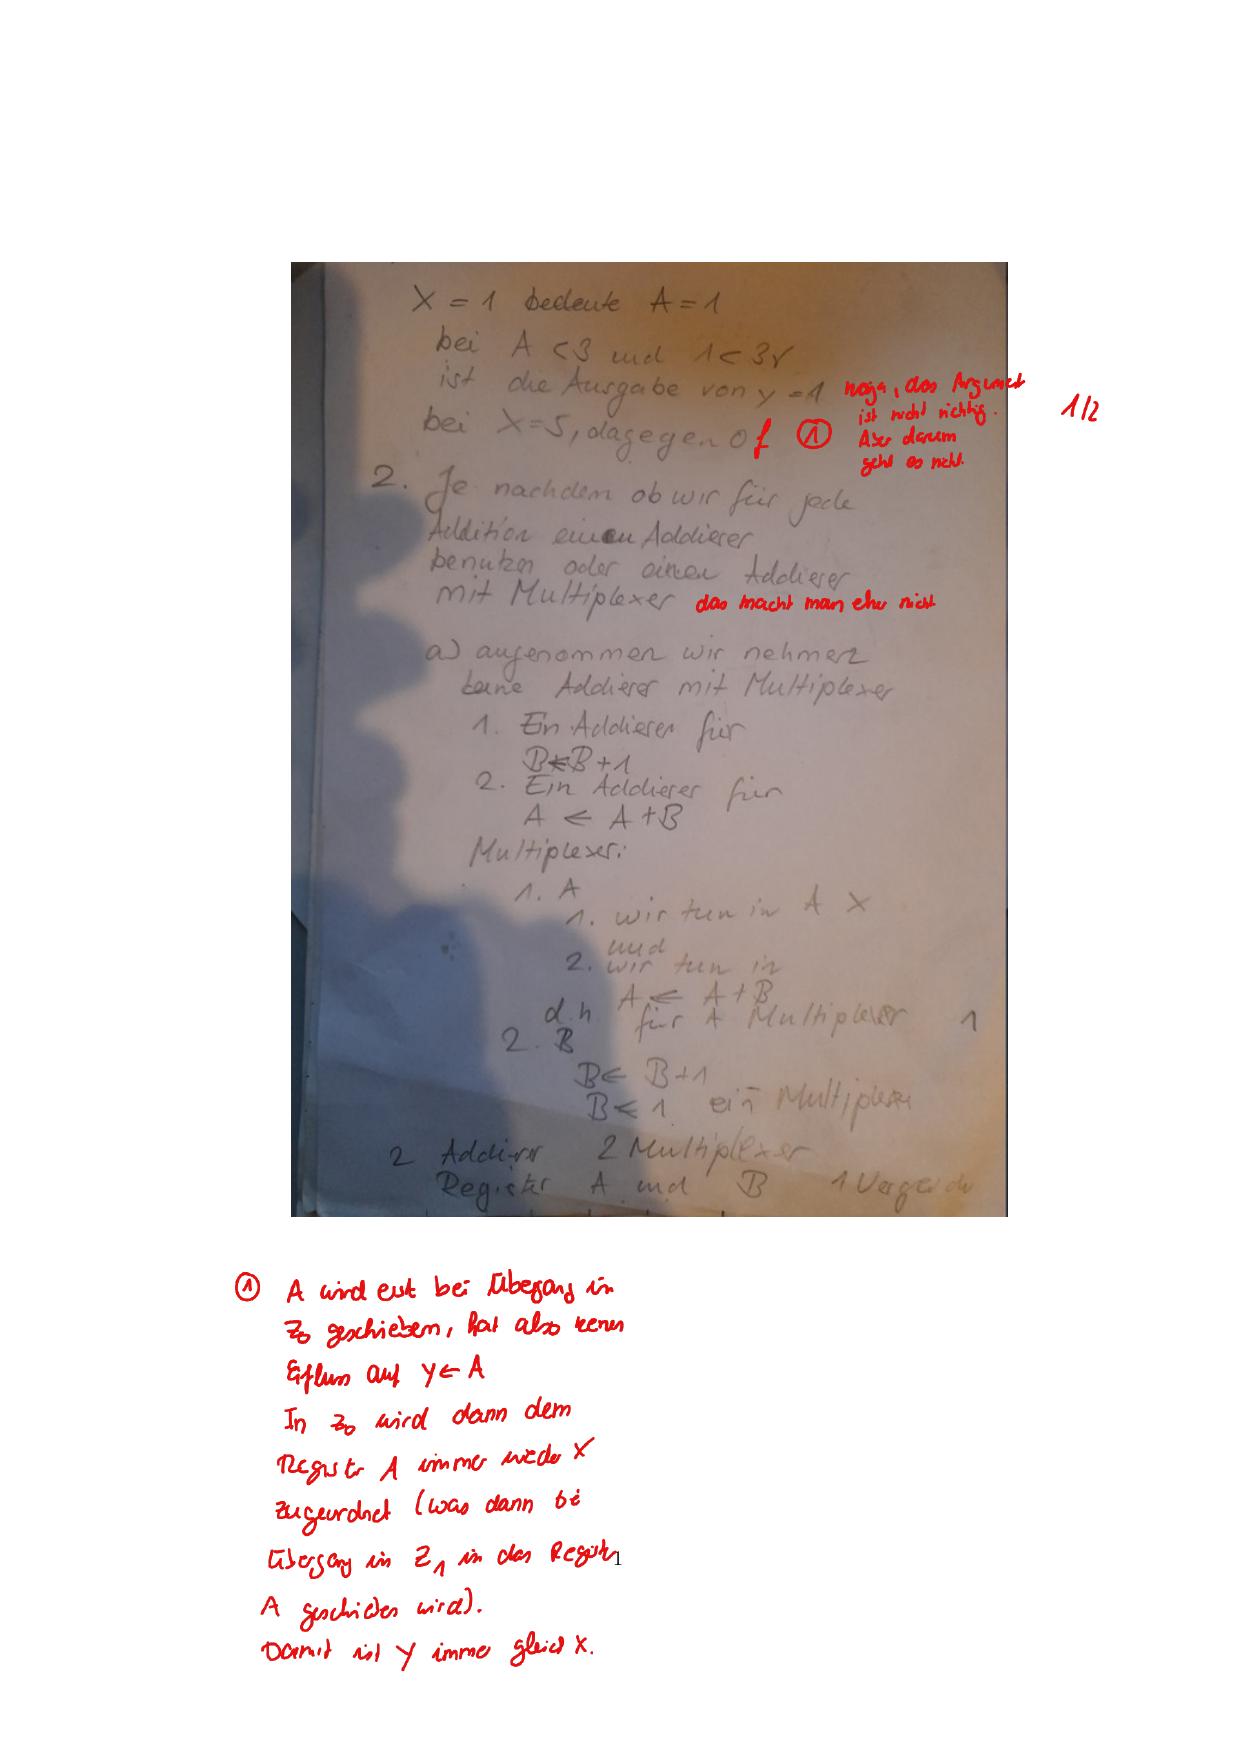 X = 1 bedeute A = 1
bei A < 3 und 1 < 3 r
ist die Ausgabe von y = 1
naja, das Argument
ist nicht richtig.
Aber darum
geht es nicht.
1/2
bei X = 5, dagegen 0 f ①
2. Je nachdem ob wir für jede
Addition einen Addierer
benutzen oder einen Addierer
mit Multiplexer das macht man eher nicht
a) angenommen wir nehmen
keine Addierer mit Multiplexer
1. Ein Addierer für
B ← B + 1
2. Ein Addierer für
A ← A + B
Multiplexer:
1. A
1. wir tun in A X
und
2. wir tun in
A ← A + B
d.h für A Multiplexer 1
2. B
B ← B + 1
B ← 1 ein Multiplexer
2 Addierer 2 Multiplexer
Register A und B 1 Vergleich
① A wird erst bei Übergang in
Z0 geschrieben, hat also keinen
Einfluss auf Y ← A
In Z0 wird dann dem
Register A immer wieder X
zugeordnet (was dann bei
Übergang in Z1 in das Register
1
A geschrieben wird).
Damit ist Y immer gleich X.